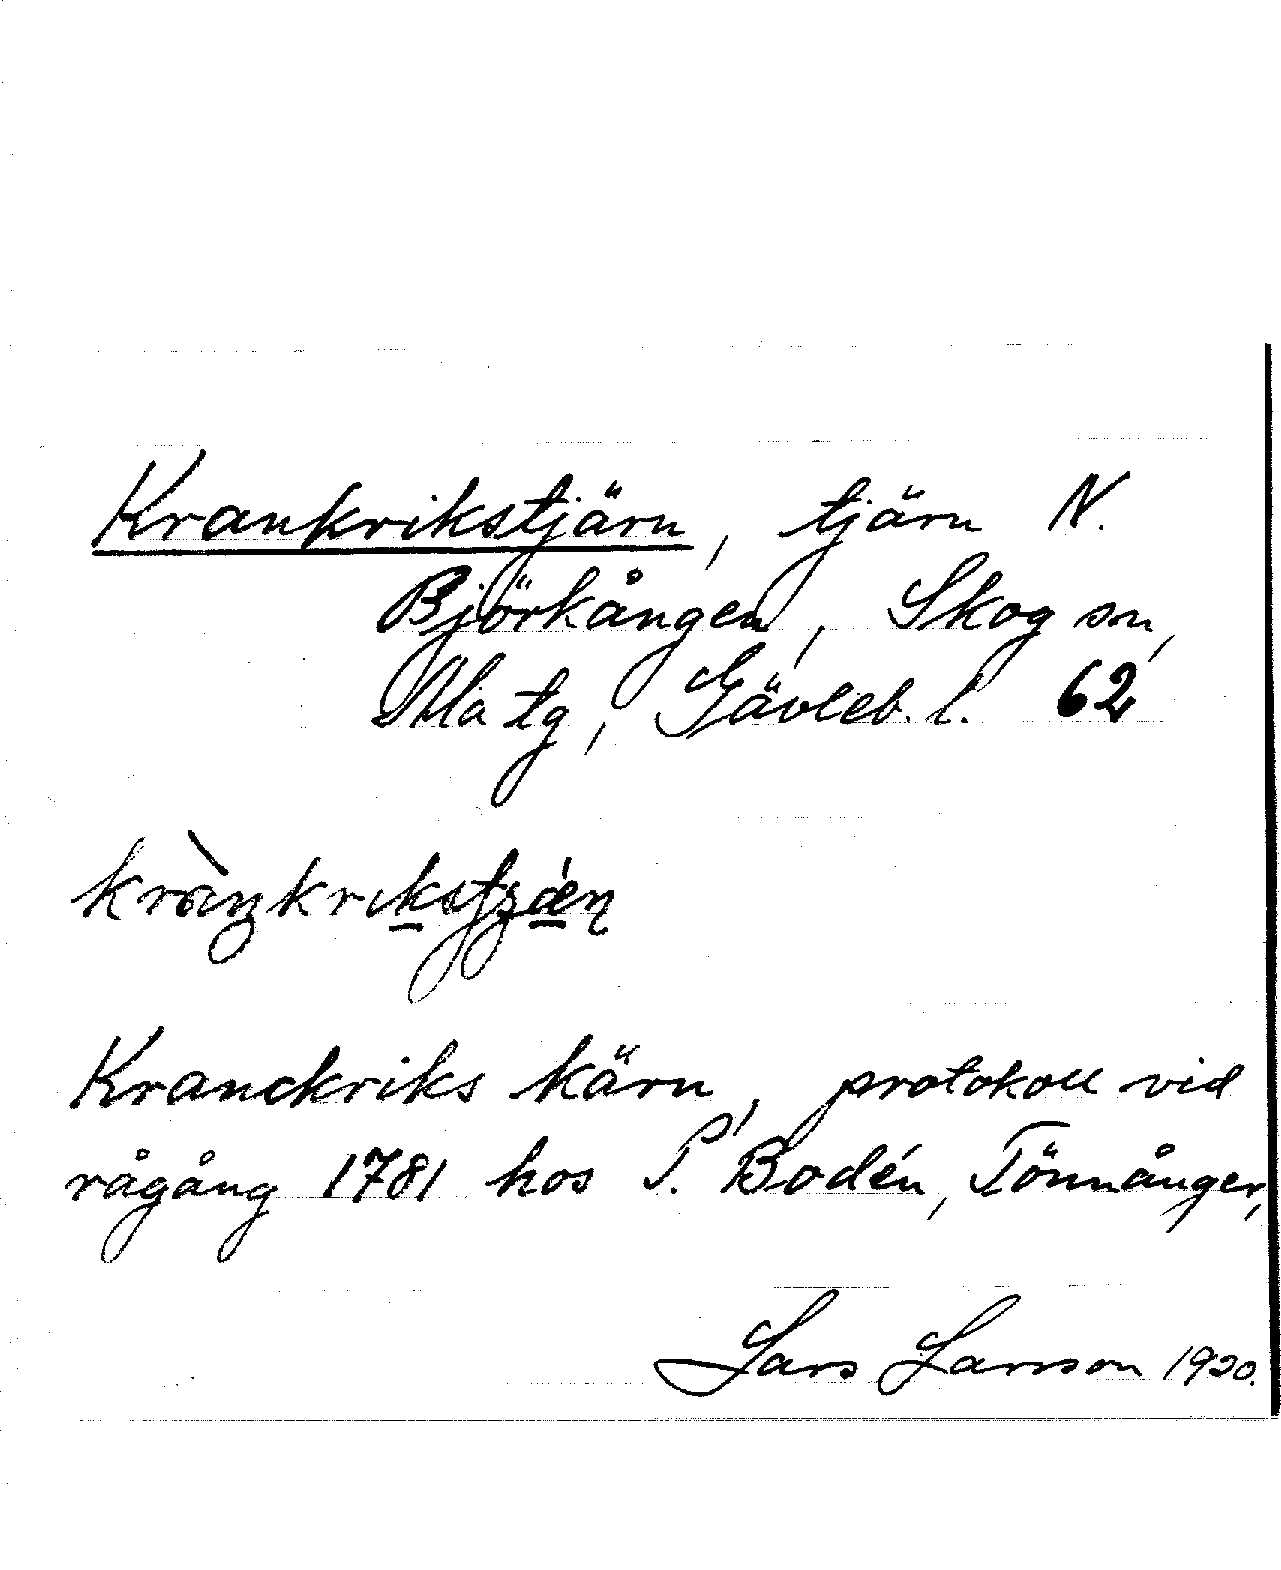 Krankrikstjärn, tjärn N.
Björkången, Skog sn,
Ala tg, Gävleb. l. 62
Kranckriks kärn, protokoll vid
rågång 1781 hos P. Bodén, Tönnånger,
Lars Larsson 1920.